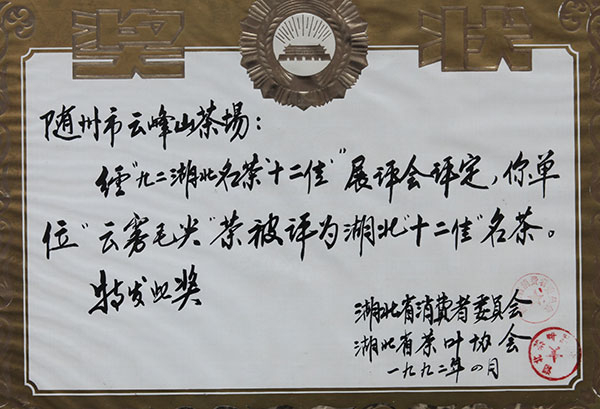 奖 状
随州市云峰山茶場：
经“九二湖北名茶‘十二佳’”展评会评定，你单
位“云雾毛尖”茶被评为湖北“十二佳”名茶。
特发此奖
湖北省消费者委員会
湖北省茶叶协会
一九九二年四月